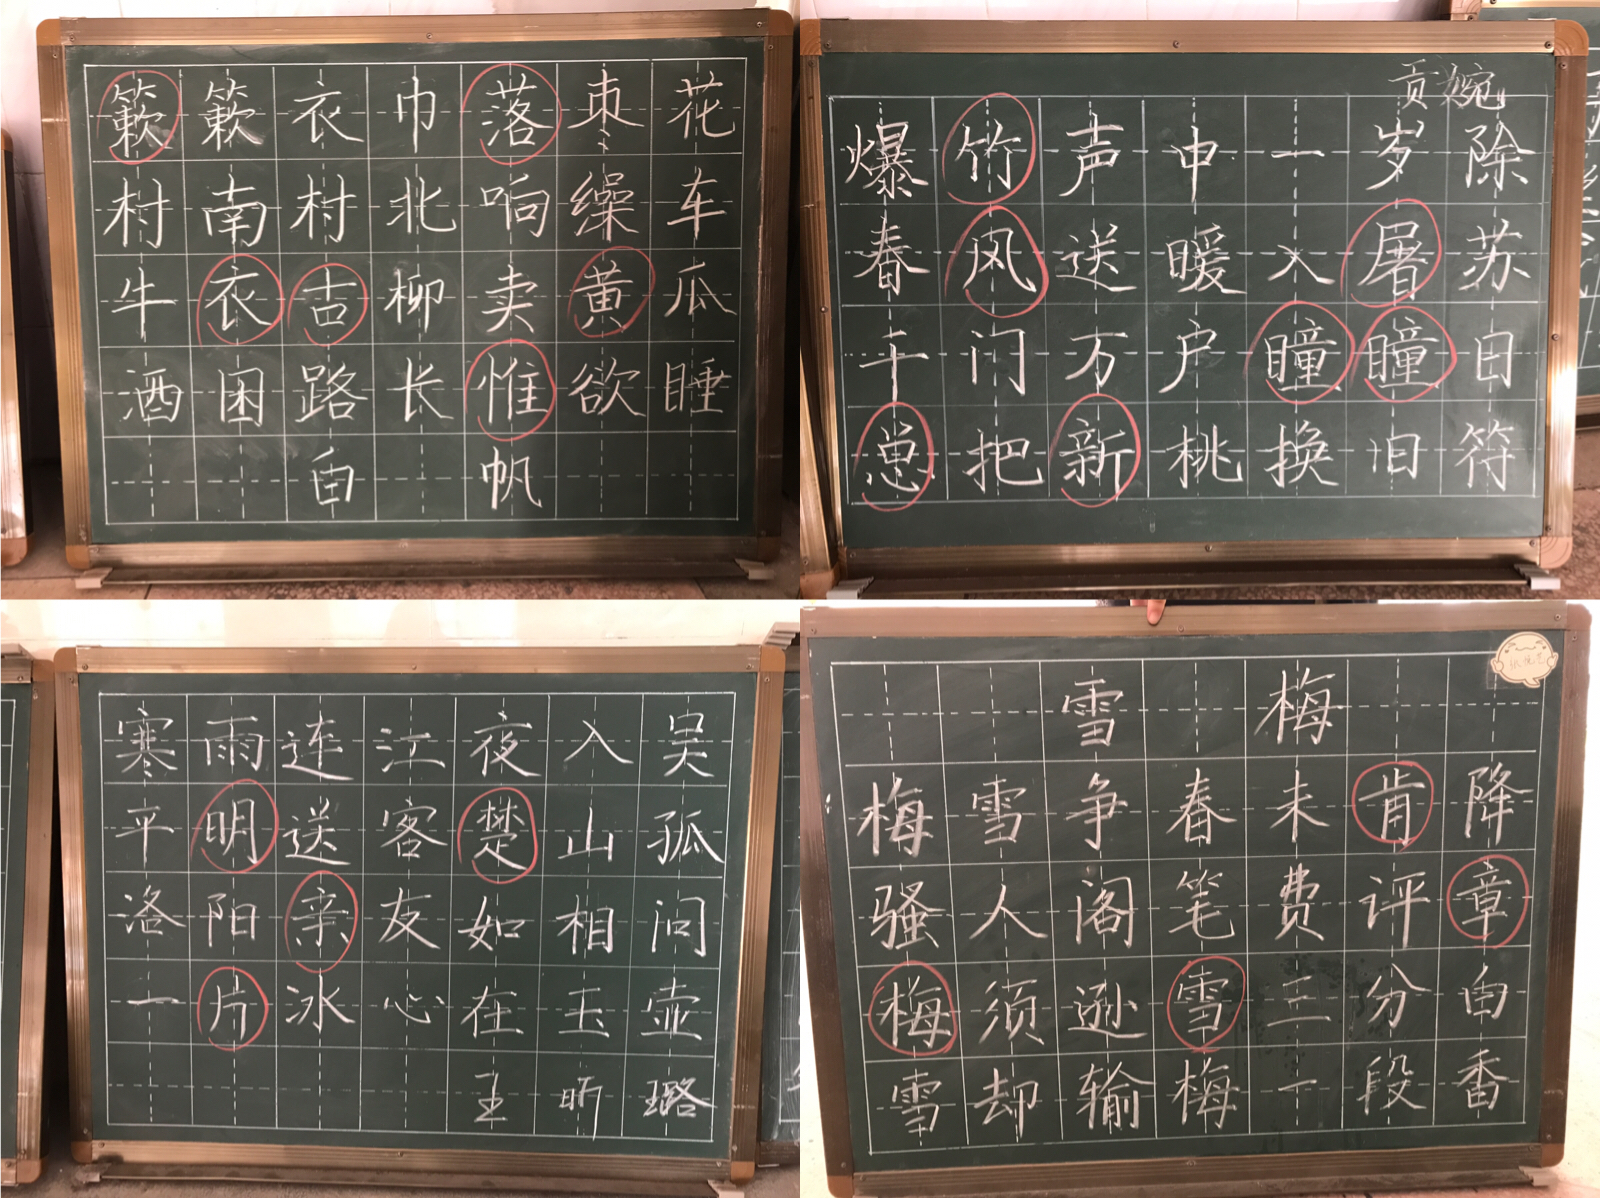 簌簌衣巾落枣花
村南村北响缲车
牛衣古柳卖黄瓜
酒困路长惟欲睡
白帆
贡婉
爆竹声中一岁除
春风送暖入屠苏
千门万户瞳瞳日
总把新桃换旧符
寒雨连江夜入吴
平明送客楚山孤
洛阳亲友如相问
一片冰心在玉壶
王昕璐
雪梅
梅雪争春未肯降
骚人阁笔费评章
梅须逊雪三分白
雪却输梅一段香